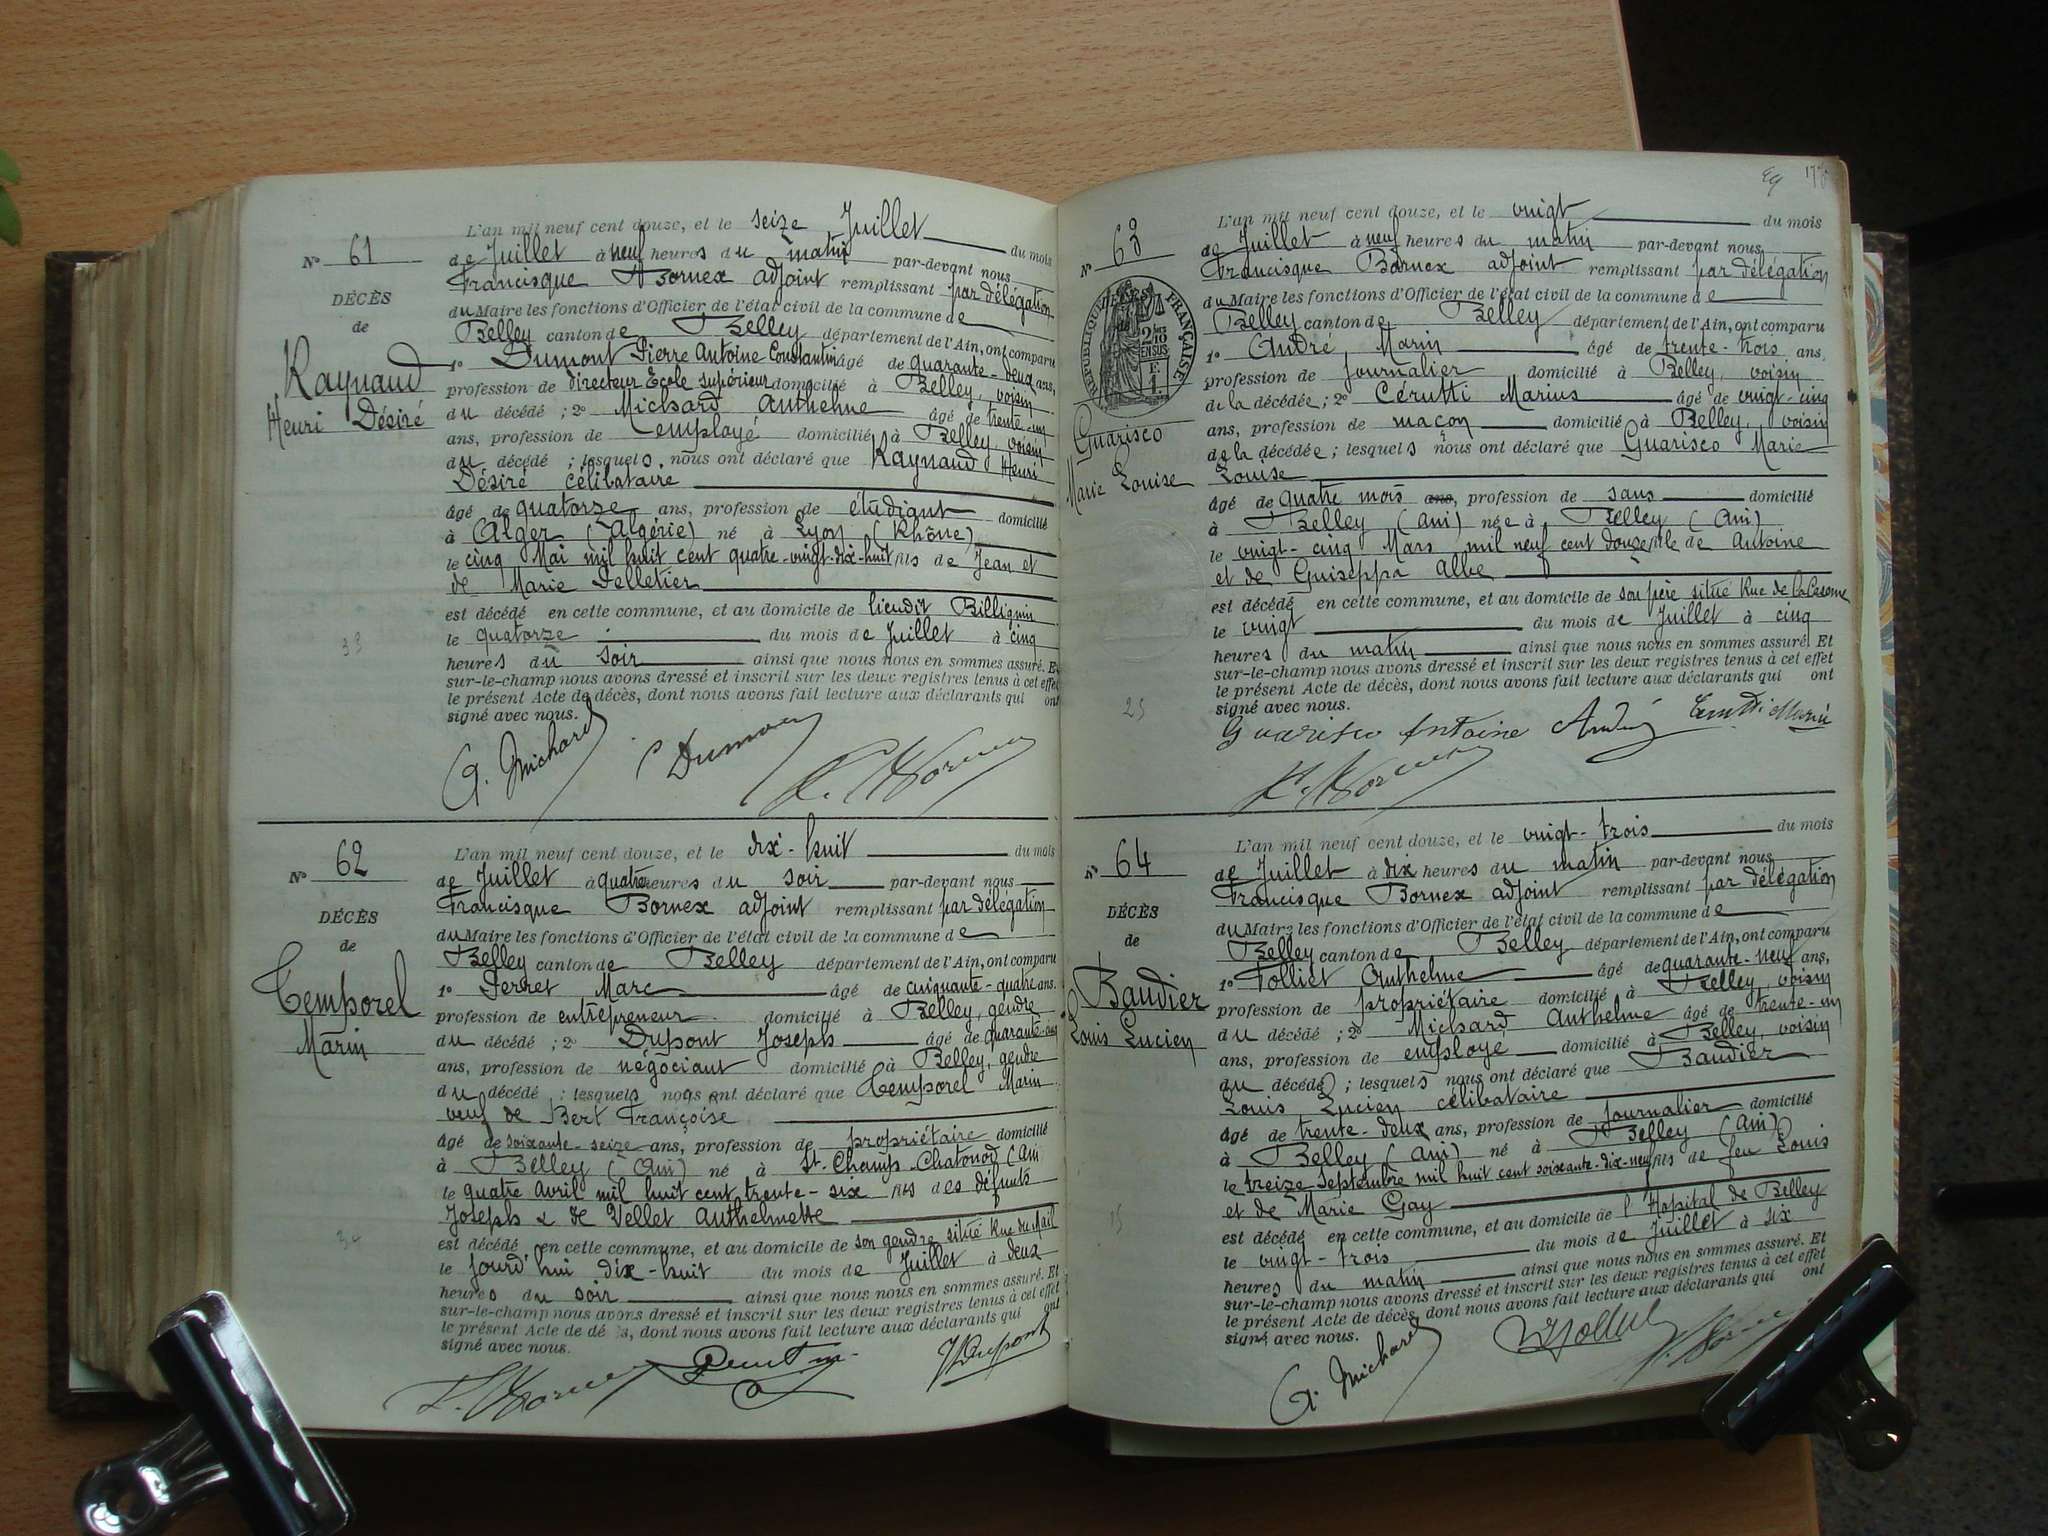 L'an mil neuf cent douze, et le seize Juillet du mois
N° 61
de Juillet à neuf heures du matin par-devant nous
Francisque Bornex adjoint remplissant par délégation
DÉCÈS
de
Raynaud
Henri Désiré
du Maire les fonctions d'Officier de l'état civil de la commune de
Belley canton de Belley département de l'Ain, ont comparu
1° Dumont Pierre Antoine Constantin âgé de quarante-deux ans,
profession de directeur Ecole supérieur domicilié à Belley, voisin
du décédé ; 2° Michard Anthelme âgé de trente-un
ans, profession de employé domicilié à Belley, voisin
du décédé ; lesquels nous ont déclaré que Raynaud Henri
Désiré célibataire
âgé de quatorze ans, profession de étudiant domicilié
à Alger (Algérie) né à Lyon (Rhône)
le cinq Mai mil huit cent quatre-vingt-dix-huit fils de Jean et
de Marie Pelletier
est décédé en cette commune, et au domicile de lieudit Billignin
le quatorze du mois de Juillet à cinq
33
heures du soir ainsi que nous nous en sommes assuré. Et
sur-le-champ nous avons dressé et inscrit sur les deux registres tenus à cet effet
le présent Acte de décès, dont nous avons fait lecture aux déclarants qui ont
signé avec nous.
A. Michard Dumont F. Bornex
L'an mil neuf cent douze, et le dix-huit du mois
N° 62
de Juillet à quatre heures du soir par-devant nous
Francisque Bornex adjoint remplissant par délégation
DÉCÈS
de
Temporel
Marin
du Maire les fonctions d'Officier de l'état civil de la commune de
Belley canton de Belley département de l'Ain, ont comparu
1° Perret Marc âgé de cinquante-quatre ans.
profession de entrepreneur domicilié à Belley, gendre
du décédé ; 2° Dupont Joseph âgé de quarante-cinq
ans, profession de négociant domicilié à Belley, gendre
du décédé ; lesquels nous ont déclaré que Temporel Marin
veuf de Bert Françoise
âgé de soixante-seize ans, profession de propriétaire domicilié
à Belley (Ain) né à St-Champ-Chatonod (Ain
le quatre avril mil huit cent trente-six fils des défunts
Joseph & de Vellet Anthelmette
est décédé en cette commune, et au domicile de son gendre situé Rue du Mail
le jourd'hui dix-huit du mois de Juillet à deux
heures du soir ainsi que nous nous en sommes assuré. Et
sur-le-champ nous avons dressé et inscrit sur les deux registres tenus à cet effet
le présent Acte de décès, dont nous avons fait lecture aux déclarants qui ont
signé avec nous.
F. Bornex Perret m. J Dupont
L'an mil neuf cent douze, et le vingt du mois
N° 63
de Juillet à neuf heures du matin par-devant nous
Francisque Bornex adjoint remplissant par délégation
RÉPUBLIQUE FRANÇAISE
2/10 EN SUS
Guarisco
Marie Louise
du Maire les fonctions d'Officier de l'état civil de la commune de
Belley canton de Belley département de l'Ain, ont comparu
1° André Marin âgé de trente-trois ans,
profession de journalier domicilié à Belley, voisin
de la décédée ; 2° Cérutti Marius âgé de vingt-cinq
ans, profession de maçon domicilié à Belley, voisin
de la décédée ; lesquels nous ont déclaré que Guarisco Marie
Louise
âgé de quatre mois ans, profession de sans domicilié
à Belley (Ain) née à Belley (Ain)
le vingt-cinq Mars mil neuf cent douze fille de Antoine
et de Guiseppa Albe
est décédé en cette commune, et au domicile de son père situé Rue de la Caserne
le vingt du mois de Juillet à cinq
heures du matin ainsi que nous nous en sommes assuré. Et
sur-le-champ nous avons dressé et inscrit sur les deux registres tenus à cet effet
le présent Acte de décès, dont nous avons fait lecture aux déclarants qui ont
signé avec nous.
Guarisco Antoine André
F. Bornex
L'an mil neuf cent douze, et le vingt-trois du mois
N° 64
de Juillet à dix heures du matin par-devant nous
Francisque Bornex adjoint remplissant par délégation
DÉCÈS
de
Baudier
Louis Lucien
du Maire les fonctions d'Officier de l'état civil de la commune de
Belley canton de Belley département de l'Ain, ont comparu
1° Folliet Anthelme âgé de quarante-neuf ans,
profession de propriétaire domicilié à Belley, voisin
du décédé ; 2° Michard Anthelme âgé de trente-un
ans, profession de employé domicilié à Belley, voisin
du décédé ; lesquels nous ont déclaré que Baudier
Louis Lucien célibataire
âgé de trente-deux ans, profession de journalier domicilié
à Belley (Ain) né à Belley (Ain)
le treize septembre mil huit cent soixante-dix-neuf fils de feu Louis
et de Marie Gay
est décédé en cette commune, et au domicile de l'Hôpital de Belley
le vingt-trois du mois de Juillet à six
heures du matin ainsi que nous nous en sommes assuré. Et
sur-le-champ nous avons dressé et inscrit sur les deux registres tenus à cet effet
le présent Acte de décès, dont nous avons fait lecture aux déclarants qui ont
signé avec nous.
A. Michard F. Bornex